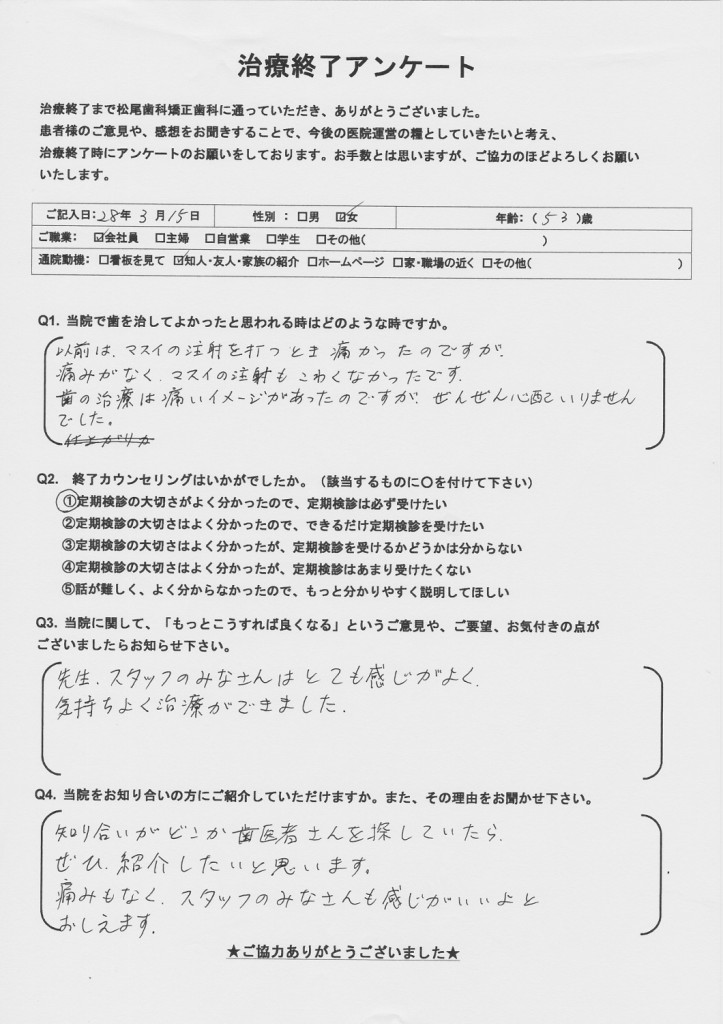 治療終了アンケート
治療終了まで松尾歯科矯正歯科に通っていただき、ありがとうございました。
患者様のご意見や、感想をお聞きすることで、今後の医院運営の糧としていきたいと考え、
治療終了時にアンケートのお願いをしております。お手数とは思いますが、ご協力のほどよろしくお願い
いたします。
ご記入日:28年 3月15日 性別 : □男 ☑女 年齢:( 53 )歳
ご職業: ☑会社員 □主婦 □自営業 □学生 □その他( )
通院動機: □看板を見て ☑知人・友人・家族の紹介 □ホームページ □家・職場の近く □その他( )
Q1. 当院で歯を治してよかったと思われる時はどのような時ですか。
以前は、マスイの注射を打つとき痛かったのですが、
痛みがなく、マスイの注射もこわくなかったです。
歯の治療は痛いイメージがあったのですが、ぜんぜん心配いりません
でした。
仕上がりか
Q2. 終了カウンセリングはいかがでしたか。(該当するものに〇を付けて下さい)
①定期検診の大切さがよく分かったので、定期検診は必ず受けたい
②定期検診の大切さはよく分かったので、できるだけ定期検診を受けたい
③定期検診の大切さはよく分かったが、定期検診を受けるかどうかは分からない
④定期検診の大切さはよく分かったが、定期検診はあまり受けたくない
⑤話が難しく、よく分からなかったので、もっと分かりやすく説明してほしい
Q3. 当院に関して、「もっとこうすれば良くなる」というご意見や、ご要望、お気付きの点が
ございましたらお知らせ下さい。
先生、スタッフのみなさんはとても感じがよく、
気持ちよく治療ができました。
Q4. 当院をお知り合いの方にご紹介していただけますか。また、その理由をお聞かせ下さい。
知り合いがどこか歯医者さんを探していたら、
ぜひ、紹介したいと思います。
痛みもなく、スタッフのみなさんも感じがいいよと
おしえます。
★ご協力ありがとうございました★